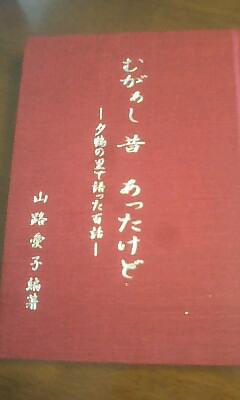 むがぁし 昔 あったけど
―夕鶴の里で語った百話―
山路愛子編著